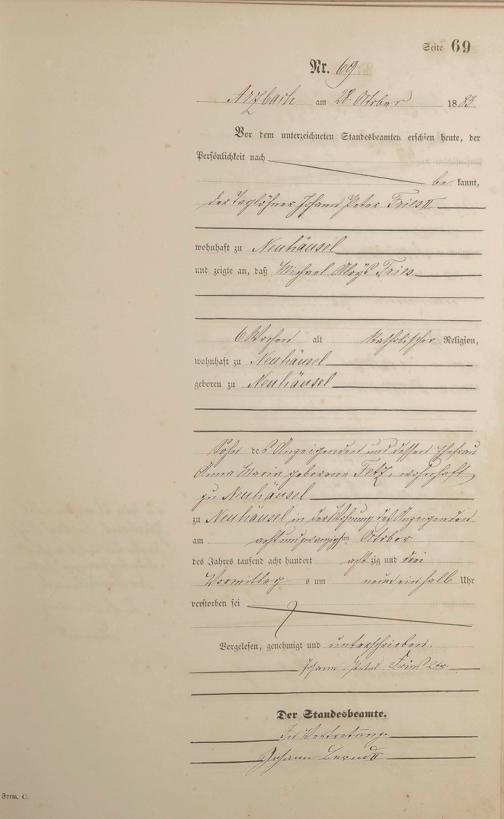 Seite 69
Nr. 69
Arzbach am 28 October 1883
Vor dem unterzeichneten Standesbeamten erschien heute, der
Persönlichkeit nach
be kannt,
der Taglöhner Johann Peter Fries II
wohnhaft zu Neuhäusel
und zeigte an, daß Michael Aloys Fries
6 Wochen alt katholischer Religion,
wohnhaft zu Neuhäusel
geboren zu Neuhäusel
Sohn des Anzeigenden und dessen Ehefrau
Anna Maria geborene Fetz, wohnhaft
zu Neuhäusel
zu Neuhäusel in der Wohnung des Anzeigenden
am achtundzwanzigsten October
des Jahres tausend acht hundert achtzig und drei
Vormittags um neun einhalb Uhr
verstorben sei
Vorgelesen, genehmigt und unterschrieben.
Johann Peter Fries
Der Standesbeamte.
In Vertretung.
Johann
Form. C.